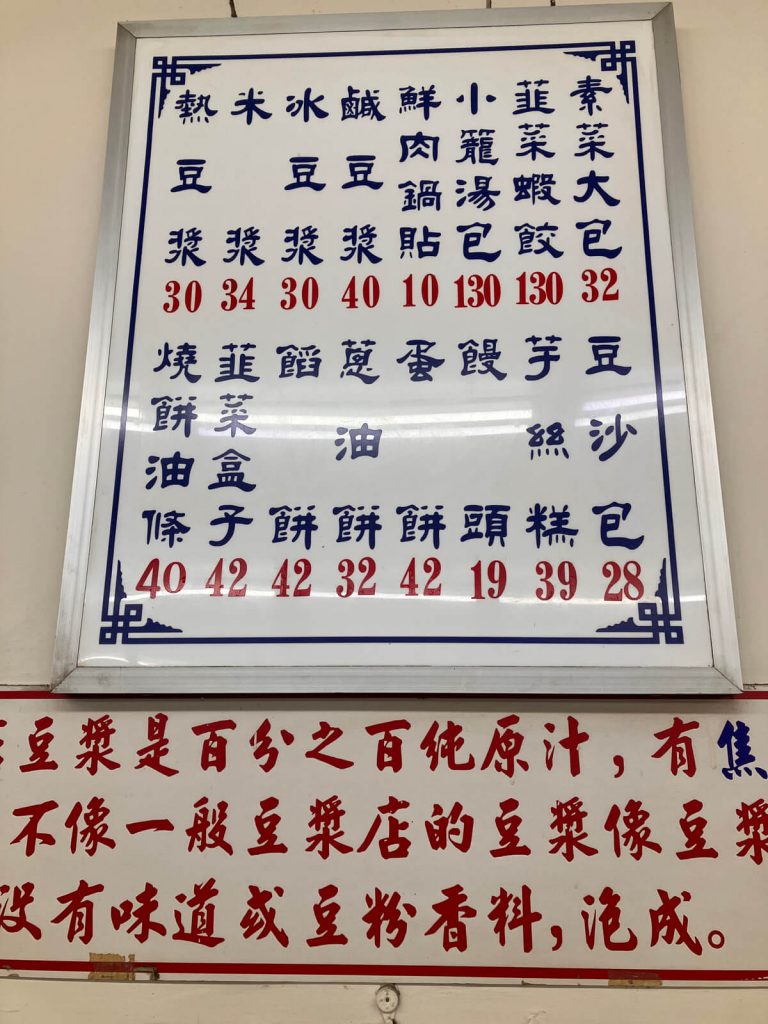 素菜大包 32
韭菜蝦餃 130
小籠湯包 130
鮮肉鍋貼 10
鹹豆漿 40
冰豆漿 30
米漿 34
熱豆漿 30
豆沙包 28
芋絲糕 39
饅頭 19
蛋餅 42
蔥油餅 32
餡餅 42
韭菜盒子 42
燒餅油條 40
豆漿是百分之百純原汁，有焦
不像一般豆漿店的豆漿像豆漿
沒有味道或豆粉香料，泡成。